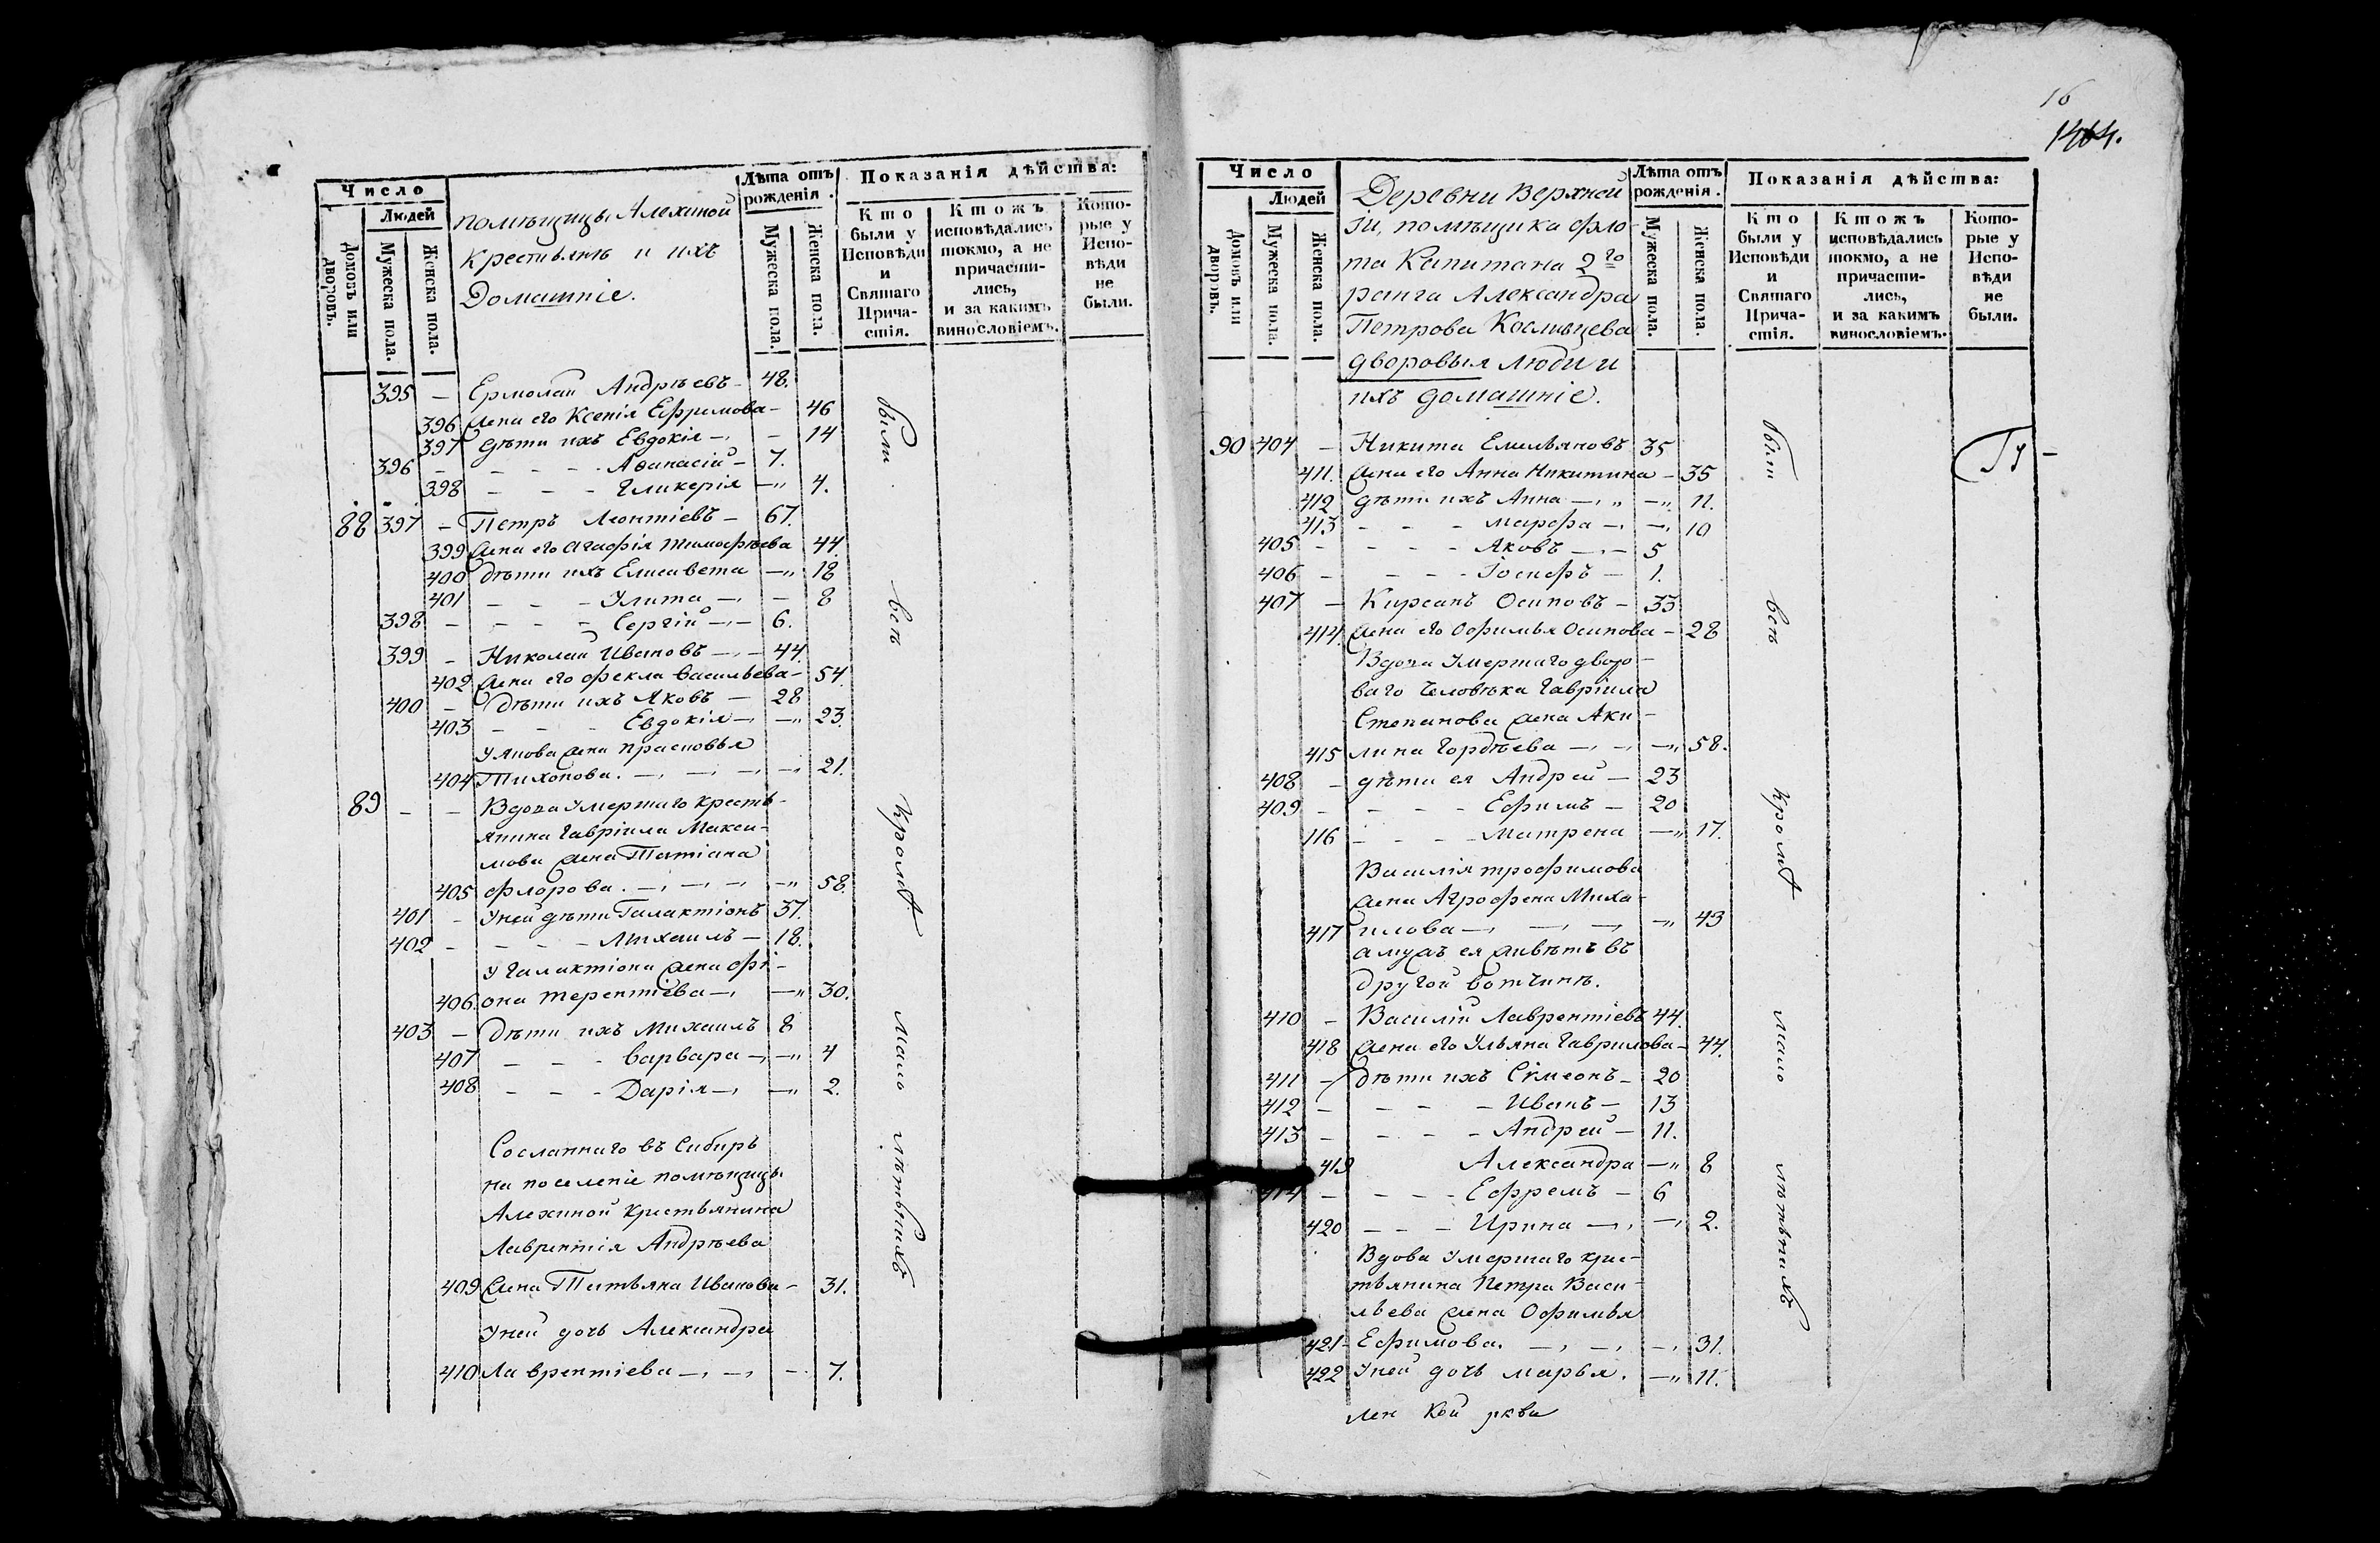 16
1464.
Число
Людей
Домовъ или дворовъ.
Мужеска пола.
Женска пола.
помѣщицы Алехиной
крестьянъ и ихъ
Домашніе.
Лѣта отъ рожденія.
Мужеска пола.
Женска пола.
Показанія дѣйства:
Кто были у Исповѣди и Святаго Причастія.
Кто жъ исповѣдались токмо, а не причастились, и за какимъ винословіемъ.
Которые у Исповѣди не были.
395 — Ермолаи Андрѣевъ — 48.
396 жена его Ксенія Ефремова — 46
397 дѣти ихъ Евдокія — 14
396 — Афанасій — 7.
398 — Гликерія — 4.
88 397 — Петръ Леонтіевъ — 67.
399 жена его Агафія Тимофѣева 44.
400 дѣти ихъ Елисавета — 18
401 — Улита — 8
398 — Сергій — 6.
399 — Николай Ивановъ — 44.
402 жена его Фекла Васильева — 54.
400 — дѣти ихъ Яковъ — 28
403 — Евдокія — 23.
У Якова жена Прасковья
404 Тихонова. — 21.
89 — — Вдова Умершаго кресть-
янина Гавріила Макси-
мова жена Татіана
405 Флорова. — 58.
401 — У ней дѣти Галактіонъ 37.
402 — Михаилъ — 18.
У Галактіона жена Фі-
406. она Терентіева — 30.
403 — Дѣти ихъ Михаилъ 8
407 — Варвара — 4
408 — Дарія — 2.
Сосланнаго въ Сибирь
на поселеніе помѣщицы
Алехиной крестьянина
Лаврентія Андрѣева
409 жена Татьяна Иванова — 31.
У ней дочь Александра
410 Лаврентіева — 7.
были всѣ кромѣ мало лѣтнихъ
Число
Людей
Домовъ или дворовъ.
Мужеска пола.
Женска пола.
Деревни Верхней
помѣщика фло-
та Капитана 2го
ранга Александра
Петрова
дворовыя люди и
ихъ домашніе.
Лѣта отъ рожденія.
Мужеска пола.
Женска пола.
Показанія дѣйства:
Кто были у Исповѣди и Святаго Причастія.
Кто жъ исповѣдались токмо, а не причастились, и за какимъ винословіемъ.
Которые у Исповѣди не были.
90 404 — Никита Емельяновъ 35
411. жена его Анна Никитина — 35
412 дѣти ихъ Анна — 11.
413 — Марфа — 10
405 — Яковъ — 5
406 — Іосифъ — 1.
407 — Кирсанъ Осиповъ — 33
414. жена его Офимья Осипова — 28
Вдова Умершаго дворо-
ваго Человѣка Гавріила
Степанова жена Аку-
415 лина Гордѣева — 58.
408 — дѣти ея Андрей — 23
409 — Ефимъ — 20
116 — Матрена — 17.
Василія Трофимова
жена Агрофена Миха-
417 илова — 43
а мужъ ея живетъ въ
другой вотчинѣ.
410 — Василій Лаврентіевъ 44.
418 жена его Ульяна Гаврилова — 44.
411 — дѣти ихъ Симеонъ — 20
412 — Иванъ — 13
413 — Андрей — 11.
419 Александра — 8
414 — Ефремъ — 6
420 — Ирина — 2.
Вдова Умершаго крес-
тьянина Петра Васи-
льева жена Офимья
421 Ефимова. — 31.
422 У ней дочь Марья. — 11.
были всѣ кромѣ мало лѣтнихъ